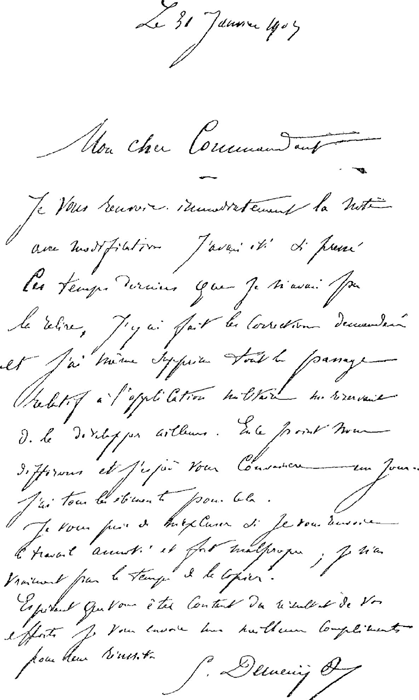 Le 31 Janvier 1903
Mon cher Commandant
Je vous renvoie immédiatement la note
avec modifications J'avais été si pressé
ces temps derniers que je n'avais pu
la relire, J'y ai fait les corrections demandées
et j'ai même supprimé tout le passage
relatif à l'application militaire me réservant
de le développer ailleurs. En ce point nous
différons et j'espère vous convaincre un jour
j'ai tous les éléments pour cela.
Je vous prie de m'excuser si je vous renvoie
ce travail annoté et fort malpropre ; je n'ai
vraiment pas le temps de le copier.
Espérant que vous êtes content du résultat de vos
efforts je vous envoie mes meilleurs compliments
pour leur réussite
G. Demenÿ